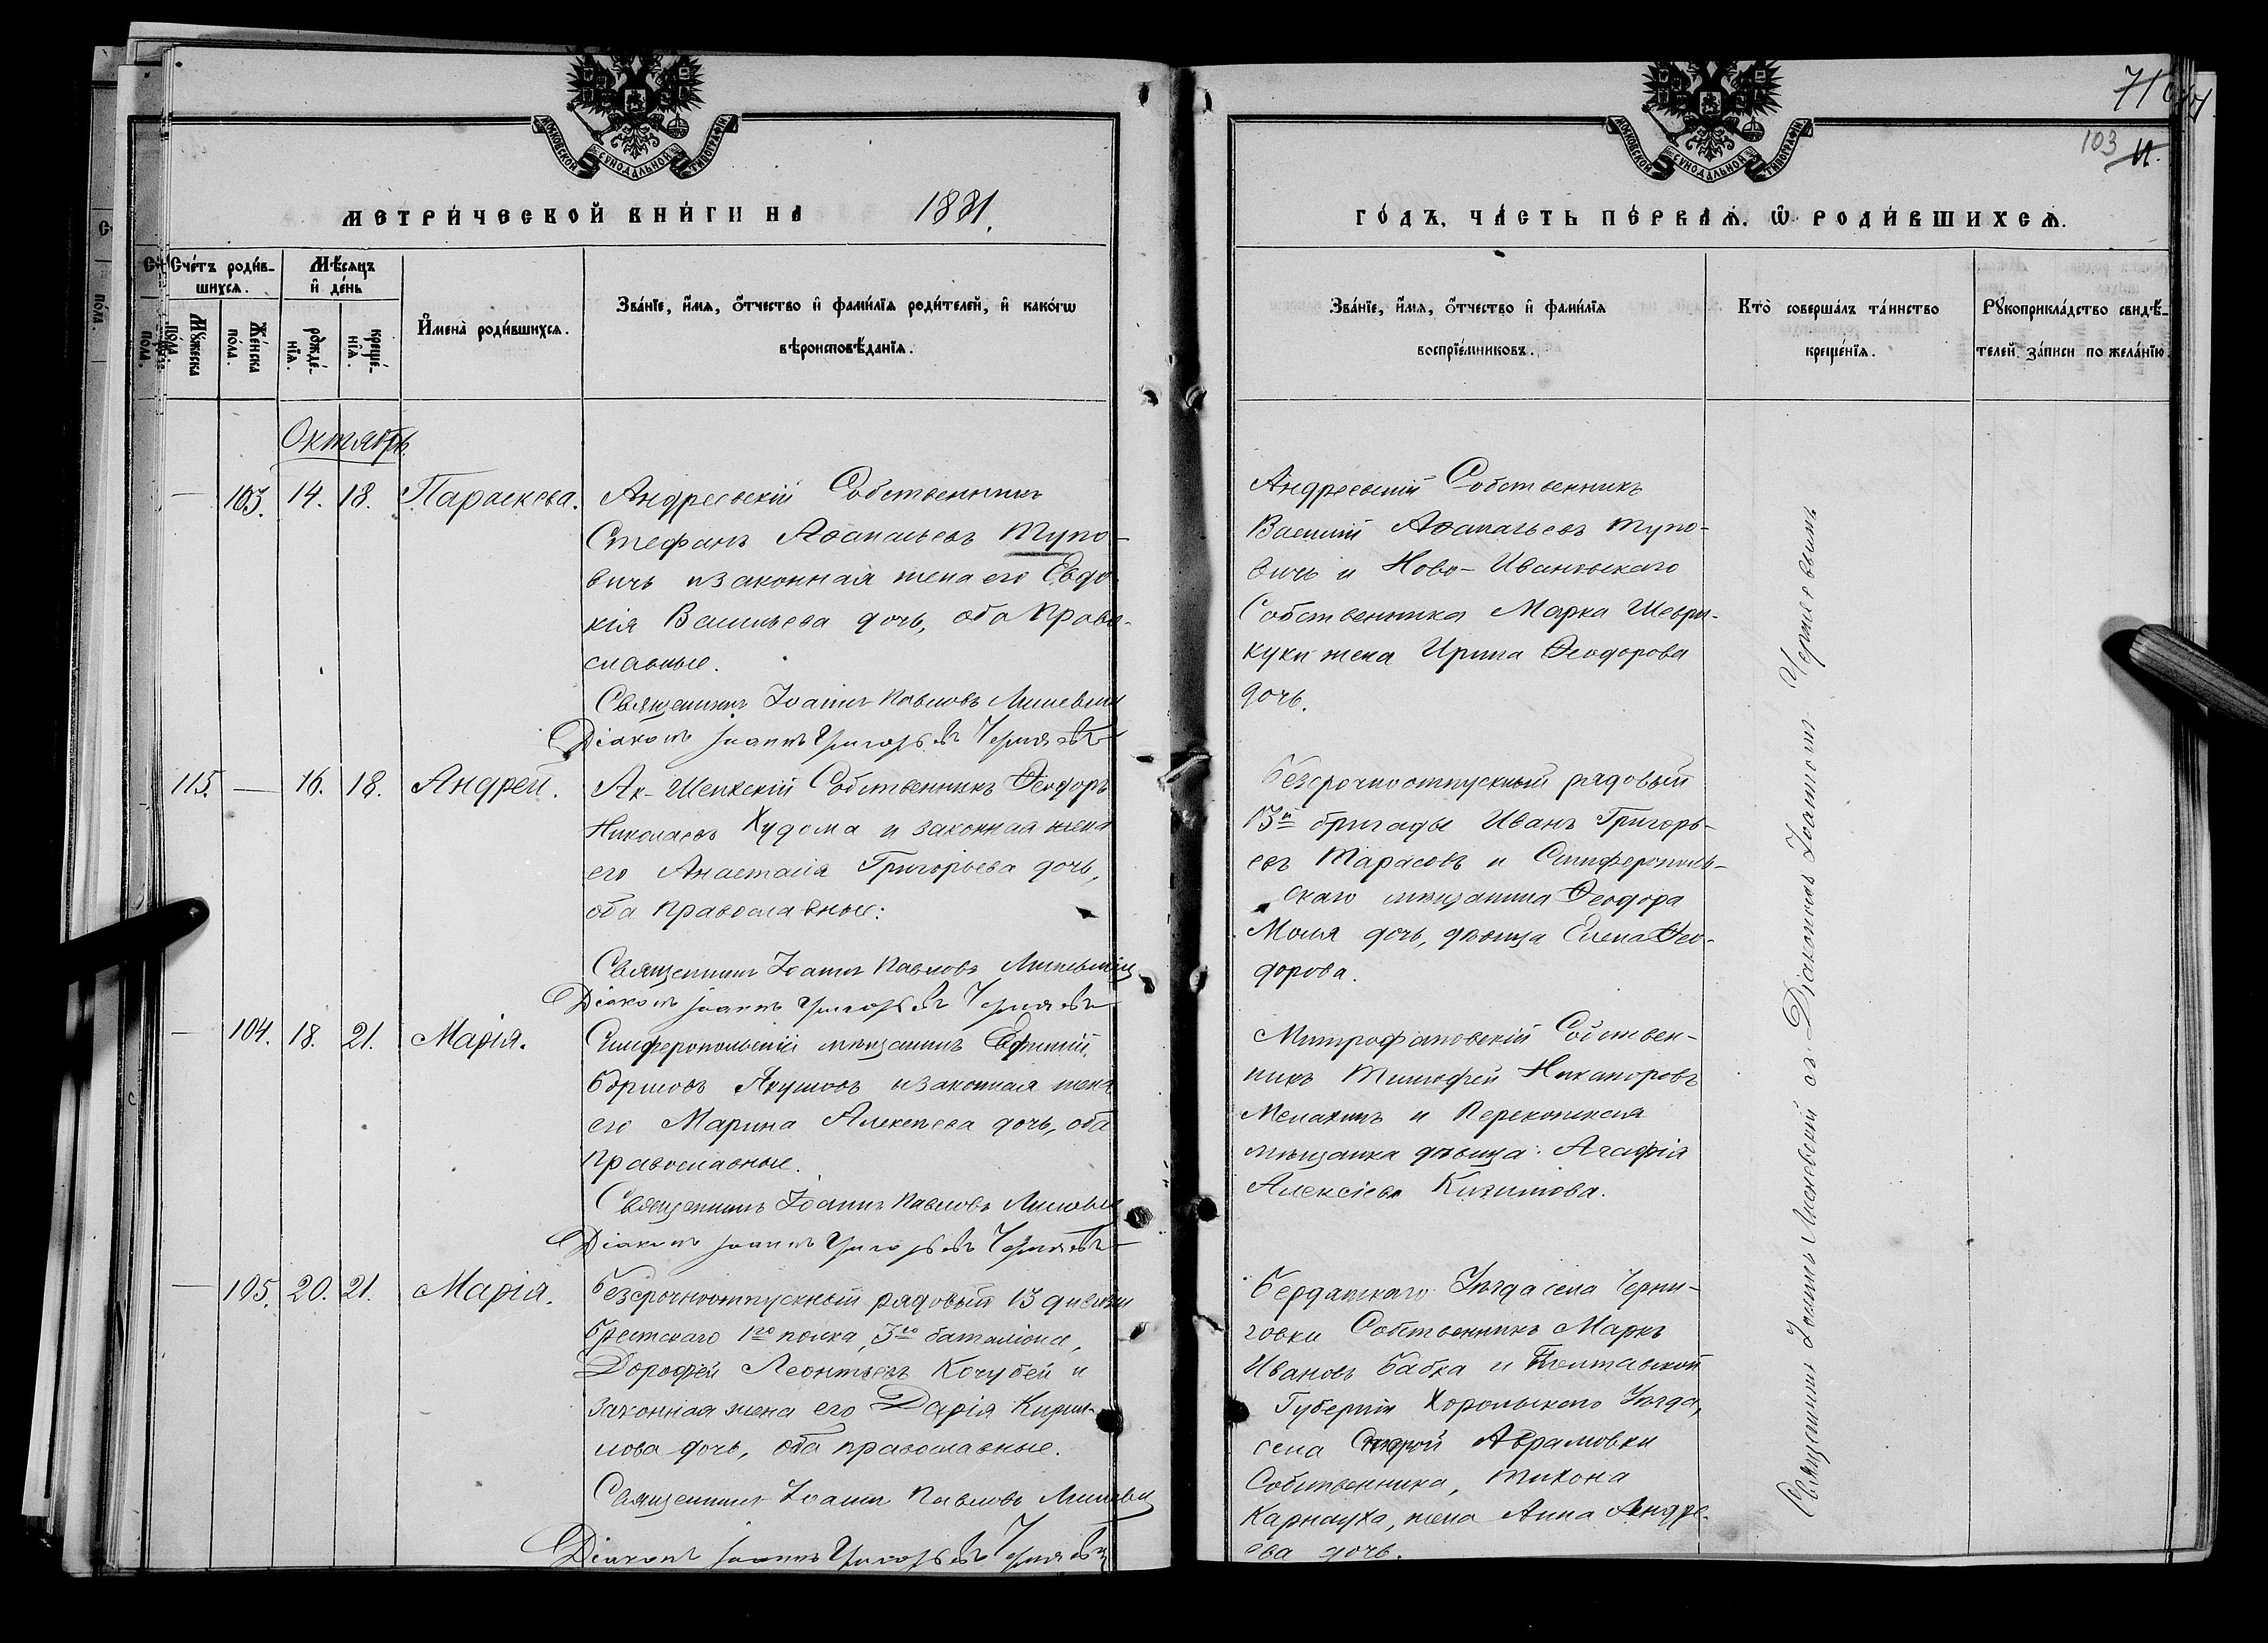 МОСКОВСКОЙ СѴНОДАЛЬНОЙ ТИПОГРАФІИ
МЕТРИ́ЧЕСКОЙ КНИ́ГИ НА 1881.
Сче́тъ роди́вшихсѧ.
Мѣ́сѧцъ и҆ де́нь
Мꙋ́жеска по́ла.
Же́нска по́ла.
рожде́нїѧ.
креще́нїѧ.
И҆мена̀ роди́вшихсѧ.
Зва́нїе, и҆́мѧ, ѻ҆́тчество и҆ фами́лїѧ роди́телей, и҆ како́гѡ
вѣроисповѣ́данїѧ.
Октябрь.
— 103. 14. 18. Параскева.
Андреевскій Собственникъ
Стефанъ Аѳанасьевъ Тупо-
вичъ и законная жена его Евдо-
кія Васильева дочь, оба право-
славные.
Священникъ Іоаннъ Павловъ
Діаконъ Іоаннъ Григорьевъ Черняевъ
115. — 16. 18. Андрей.
Ак-Шеихскій Собственникъ Ѳеодоръ
Николаевъ Худома и законная жена
его Анастасія Григорьева дочь,
оба православные:
Священникъ Іоаннъ Павловъ
Діаконъ Іоаннъ Григорьевъ Черняевъ
— 104. 18. 21. Марія.
Симферопольскій мѣщанинъ Ефимій
Якушовъ и законная жена
его Марина Алексѣева дочь, оба
православные.
Священникъ Іоаннъ Павловъ
Діаконъ Іоаннъ Григорьевъ Черняевъ
— 105. 20. 21. Марія.
Безсрочноотпускный рядовый 13 дивизіи
Брестскаго 1го полка, 3го баталіона,
Дорофей Леонтьевъ Кочубей и
законная жена его Дарія Кирил-
лова дочь, оба православные.
Священникъ Іоаннъ Павловъ
Діаконъ Іоаннъ Григорьевъ Черняевъ
71
103
МОСКОВСКОЙ СѴНОДАЛЬНОЙ ТИПОГРАФІИ
ГО́ДЪ, ЧА́СТЬ ПЕ́РВАѦ, Ѡ҆ РОДИ́ВШИХСѦ.
Зва́нїе, и҆́мѧ, ѻ҆́тчество и҆ фами́лїѧ
воспрїе́мниковъ.
Кто̀ соверша́лъ та́инство
креще́нїѧ.
Рꙋкоприкла́дство свидѣ́-
телей за́писи по жела́нїю.
Андреевскій Собственникъ
Василій Аѳанасьевъ Тупо-
вичъ и Ново-Ивановскаго
Собственника Марка Шевры-
куки жена Ирина Ѳеодорова
дочь.
Безсрочноотпускный рядовый
13й бригады Иванъ Григорь-
евъ Тарасовъ и Симферополь-
скаго мѣщанина Ѳеодора
дочь, дѣвица Елена Ѳео-
дорова.
Митрофановскій Собствен-
никъ Тимофей Никаноровъ
Мелахинъ и Перекопская
мѣщанка дѣвица: Агафія
Алексіева
Бердянскаго Уѣзда села Черни-
говки Собственникъ Маркъ
Ивановъ Бабка и Полтавской
Губерніи Хорольскаго Уѣзда,
села Старой Аврамовки
Собственника, Тихона
Карнауха, жена Анна Андре-
ева дочь.
Священникъ Іоаннъ съ Діакономъ Іоанномъ Черняевымъ